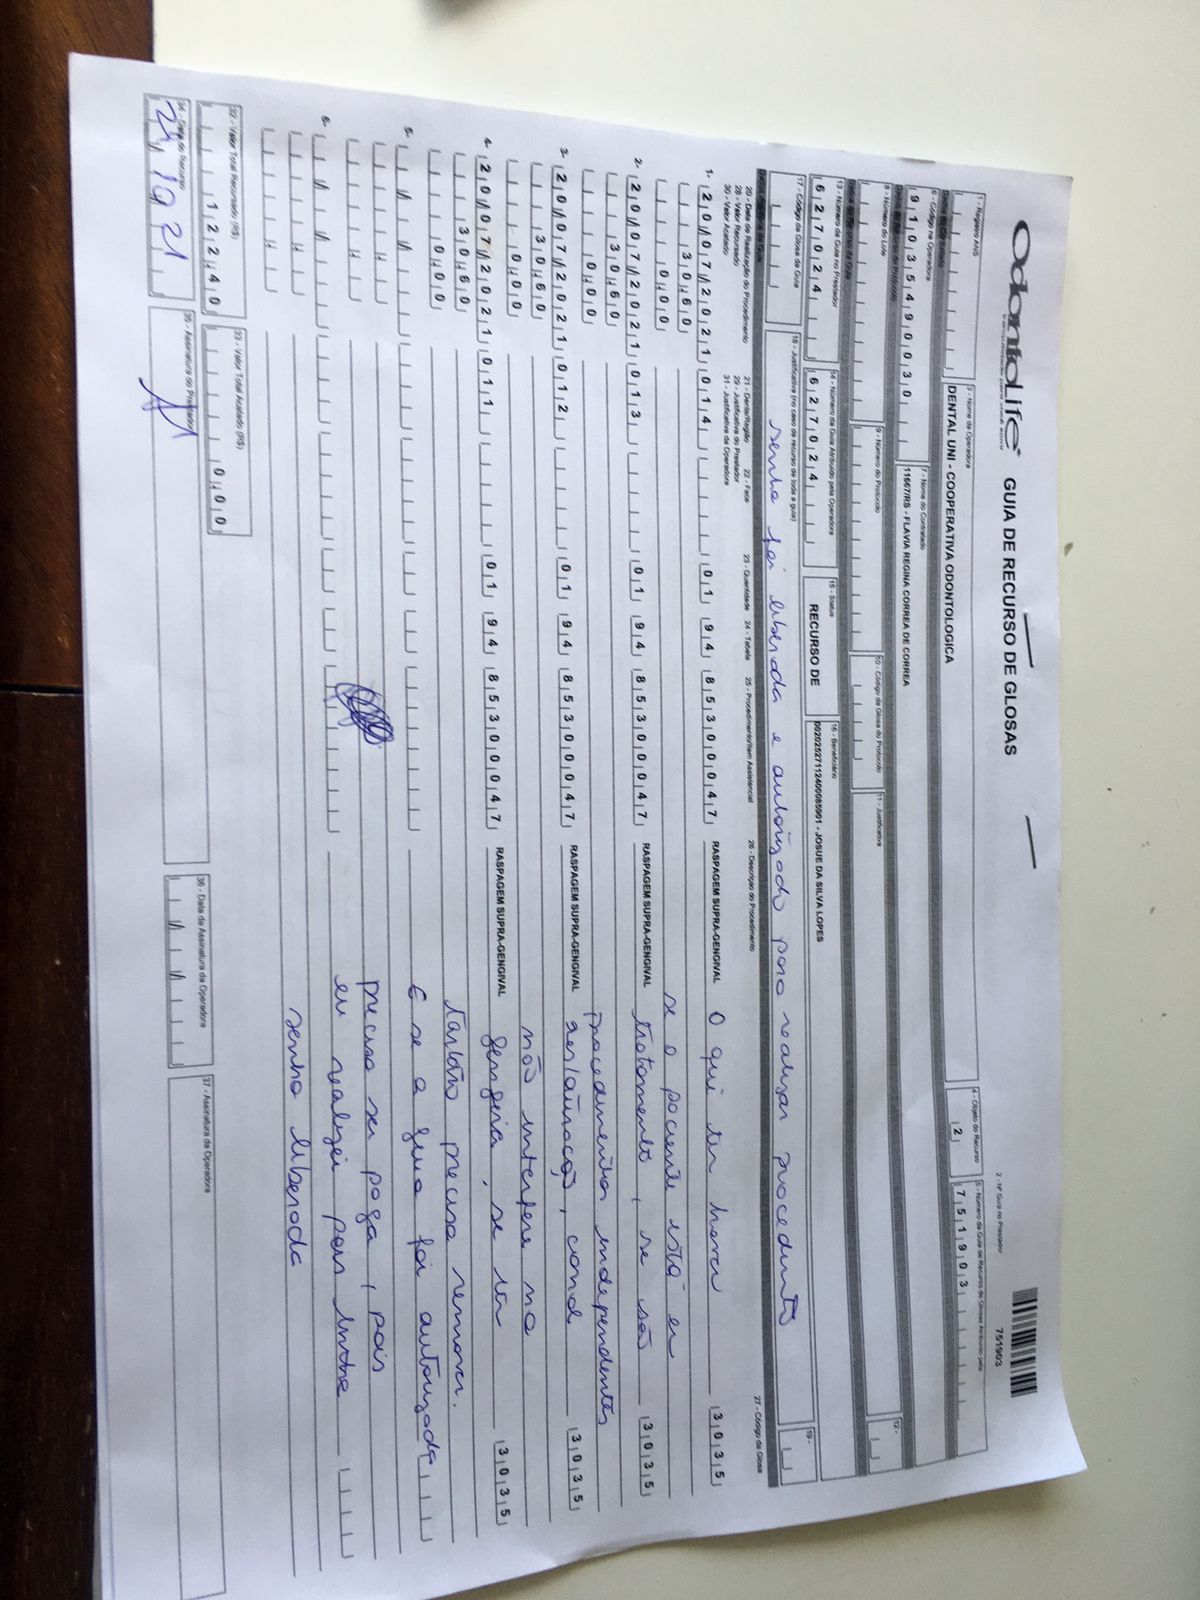 OdontoLife GUIA DE RECURSO DE GLOSAS
751903
2 - Nº Guia no Prestador
1 - Registro ANS
3 - Nome da Operadora
DENTAL UNI - COOPERATIVA ODONTOLOGICA
4 - Objeto do Recurso
2
5 - Número da Guia de Recurso de Glosas Atribuído pela
751903
6 - Código na Operadora
91035490030
7 - Nome do Contratado
11667/RS - FLAVIA REGINA CORREA DE CORREA
8 - Número do Lote
9 - Número do Protocolo
10 - Código da Glosa do Protocolo
11 - Justificativa
12 -
13 - Número da Guia no Prestador
627024
14 - Número da Guia Atribuído pela Operadora
627024
15 - Status
RECURSO DE
16 - Beneficiário
00202527112400085901 - JOSUE DA SILVA LOPES
17 - Código da Glosa da Guia
18 - Justificativa (no caso de recurso de toda a guia)
senha foi liberada e autorizado para realizar procedimento
19 -
20 - Data de Realização do Procedimento 21 - Dente/Região 22 - Face 23 - Quantidade 24 - Tabela 25 - Procedimento/Item Assistencial 26 - Descrição do Procedimento 27 - Código da Glosa
28 - Valor Recursado 29 - Justificativa do Prestador
30 - Valor Acatado 31 - Justificativa da Operadora
1- 20/07/2021 014 01 94 85300047 RASPAGEM SUPRA-GENGIVAL O que tem haver 3035
30,60
0,00 se o paciente está em
2- 20/07/2021 013 01 94 85300047 RASPAGEM SUPRA-GENGIVAL tratamento, se são 3035
30,60
0,00 procedimentos independentes
3- 20/07/2021 012 01 94 85300047 RASPAGEM SUPRA-GENGIVAL restauração, canal 3035
30,60
0,00 não interfere na
4- 20/07/2021 011 01 94 85300047 RASPAGEM SUPRA-GENGIVAL gengiva, se tem 3035
30,60 tartáro preciso remover.
0,00
5- E se a guia foi autorizada
precisa ser paga, pois
6- eu realizei pois tinha
senha liberada
32 - Valor Total Recursado (R$)
122,40
33 - Valor Total Acatado (R$)
0,00
34 - Data do Recurso
35 - Assinatura do Prestador
36 - Data da Assinatura da Operadora
37 - Assinatura da Operadora